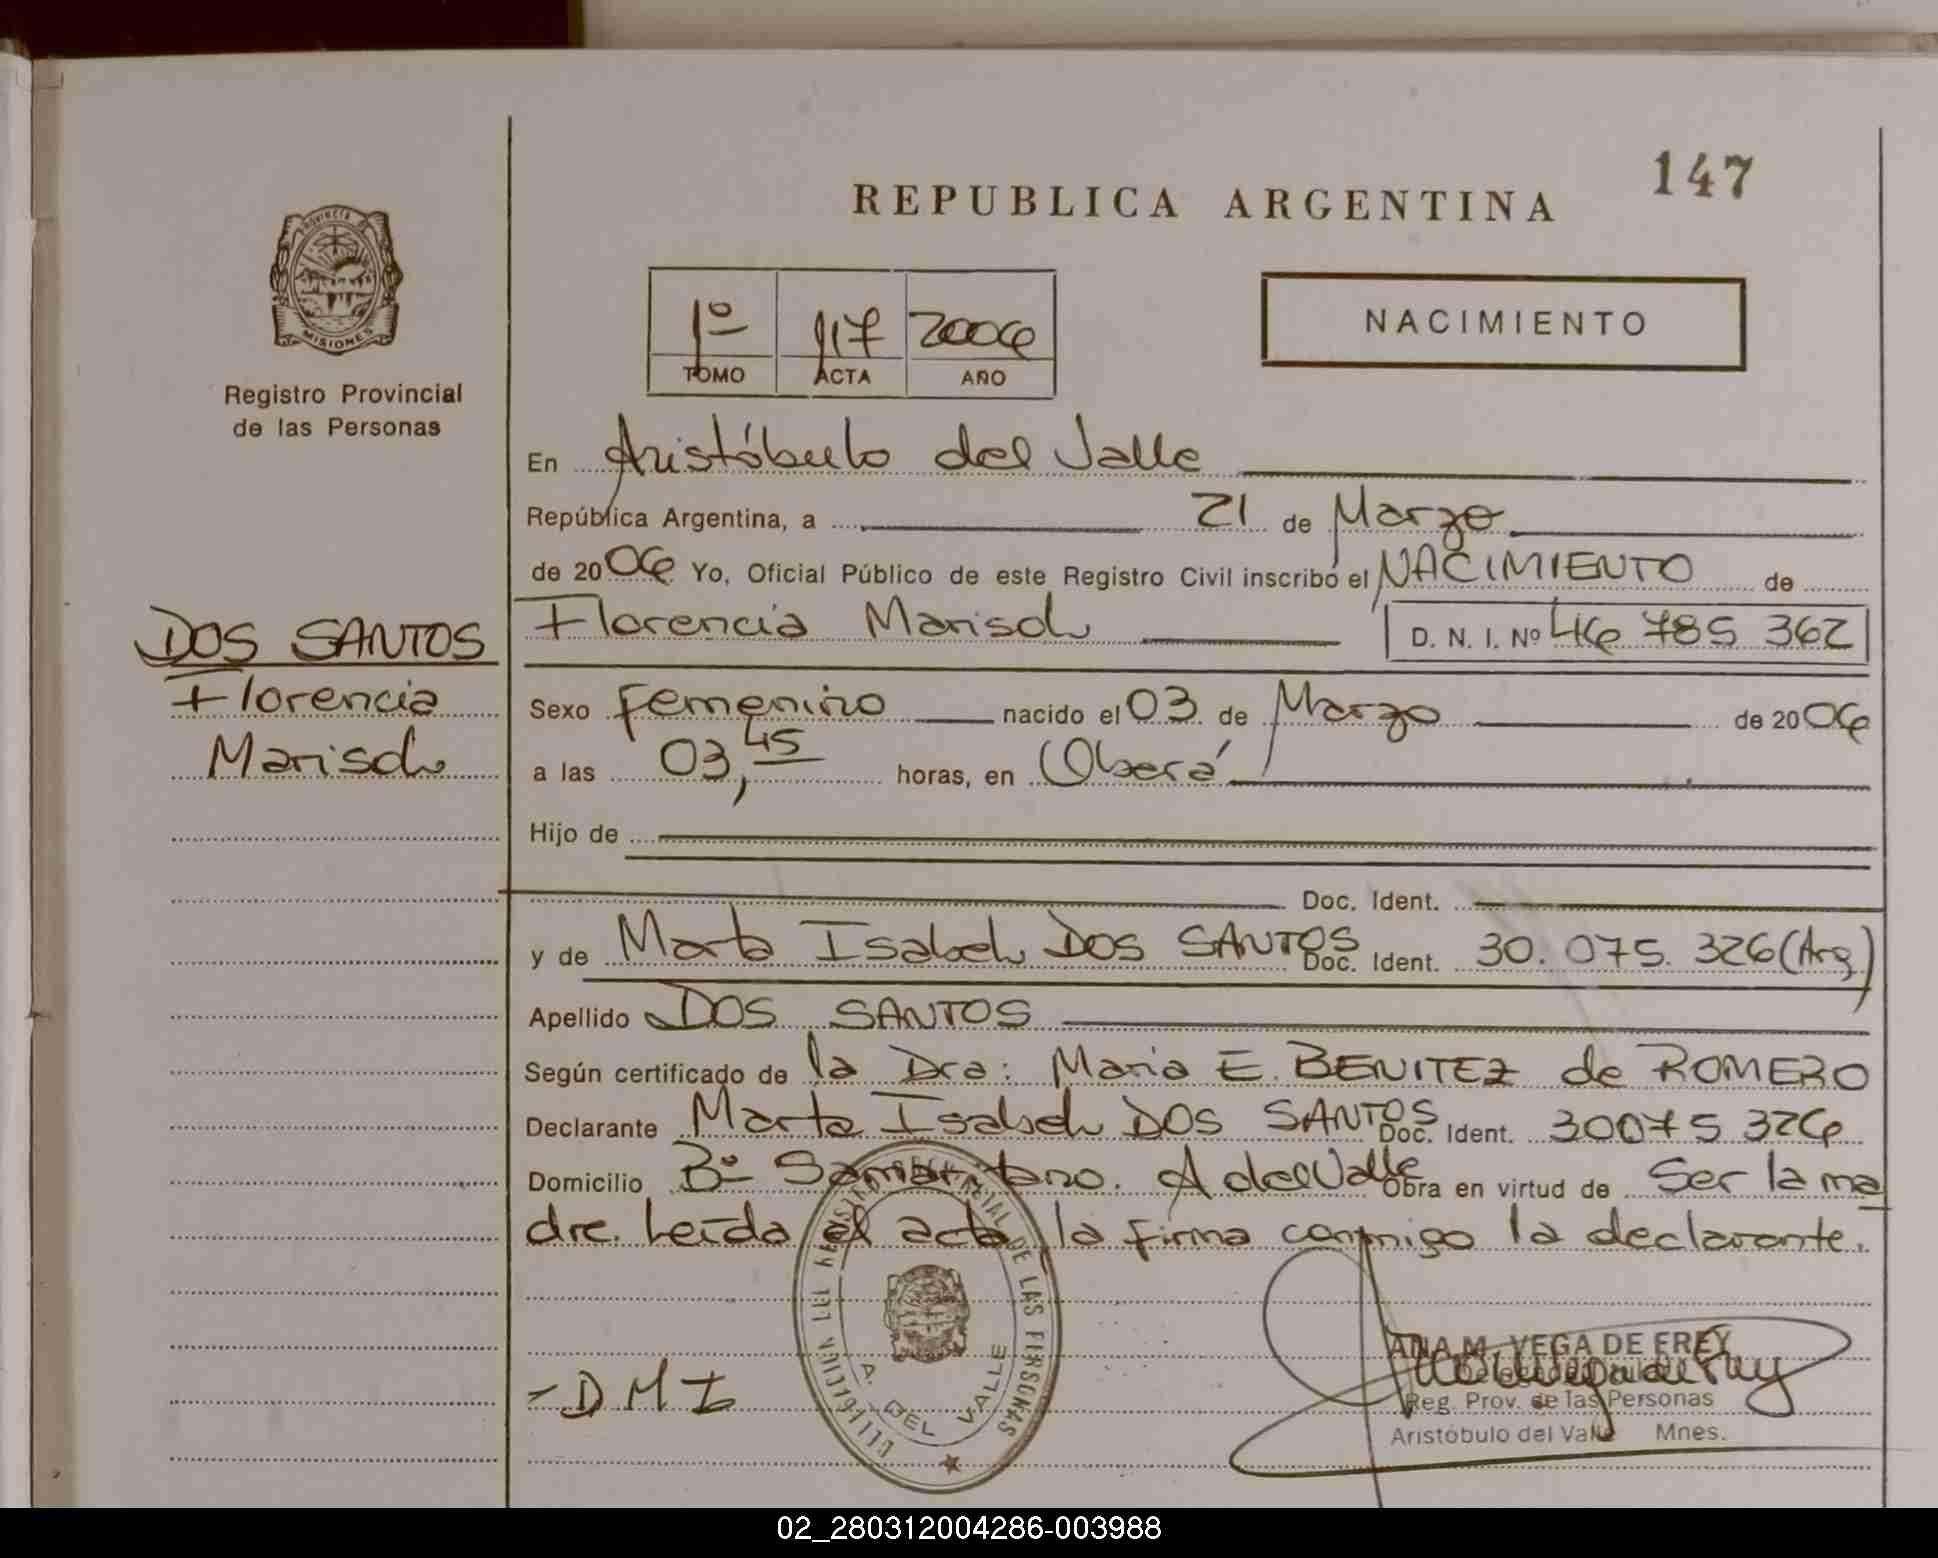 147
REPUBLICA ARGENTINA
PROVINCIA DE
MISIONES
Registro Provincial
de las Personas
NACIMIENTO
1º 117 2006
TOMO ACTA AÑO
En Aristóbulo del Valle
República Argentina, a 21 de Marzo
de 2006 Yo, Oficial Público de este Registro Civil inscribo el NACIMIENTO de
Florencia Marisol D. N. I. Nº 46 785 362
DOS SANTOS
Florencia
Marisol
Sexo Femenino nacido el 03 de Marzo de 2006
a las 03,45 horas, en Oberá
Hijo de
Doc. Ident.
y de Marta Isabel DOS SANTOS Doc. Ident. 30.075.326 (Arg)
Apellido DOS SANTOS
Según certificado de la Dra: Maria E. BENITEZ de ROMERO
Declarante Marta Isabel DOS SANTOS Doc. Ident. 30075 326
Domicilio Bº Samaritano. A del Valle Obra en virtud de Ser la ma
dre. Leída el acta, la firma conmigo la declarante.
DE LAS PERSONAS
A. DEL VALLE
D M I
ANA M. VEGA DE FREY
Reg. Prov. de las Personas
Aristóbulo del Valle Mnes.
02_280312004286-003988